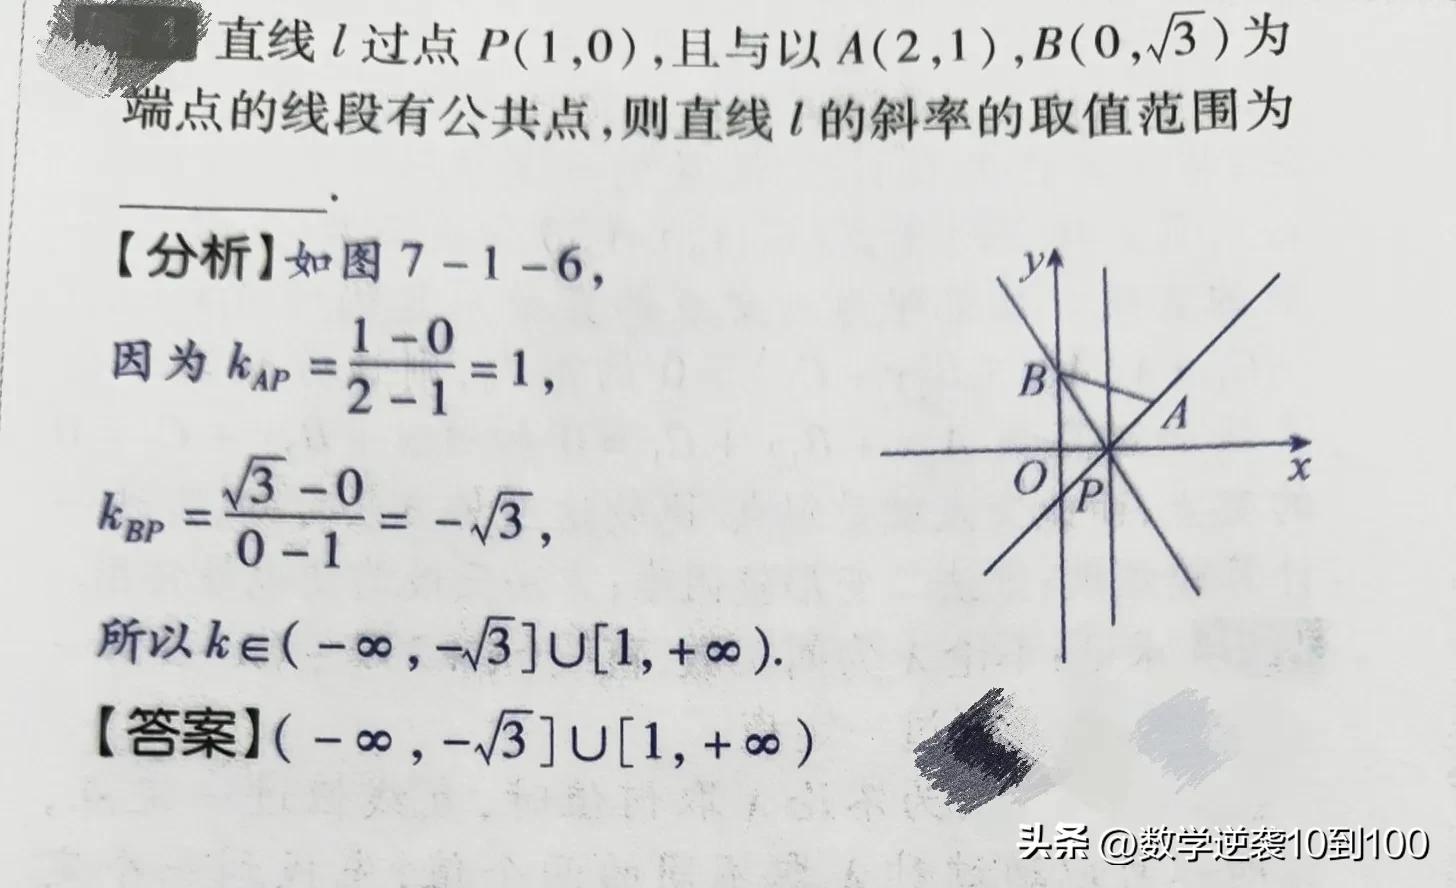 直线 l 过点 P(1,0),且与以 A(2,1),B(0,√3)为
端点的线段有公共点,则直线 l 的斜率的取值范围为
________.
【分析】如图 7-1-6,
因为 k_AP = (1-0)/(2-1) = 1,
k_BP = (√3-0)/(0-1) = -√3,
所以 k∈(-∞,-√3]∪[1,+∞).
【答案】(-∞,-√3]∪[1,+∞)
y
B
A
O
P
x
头条 @数学逆袭10到100